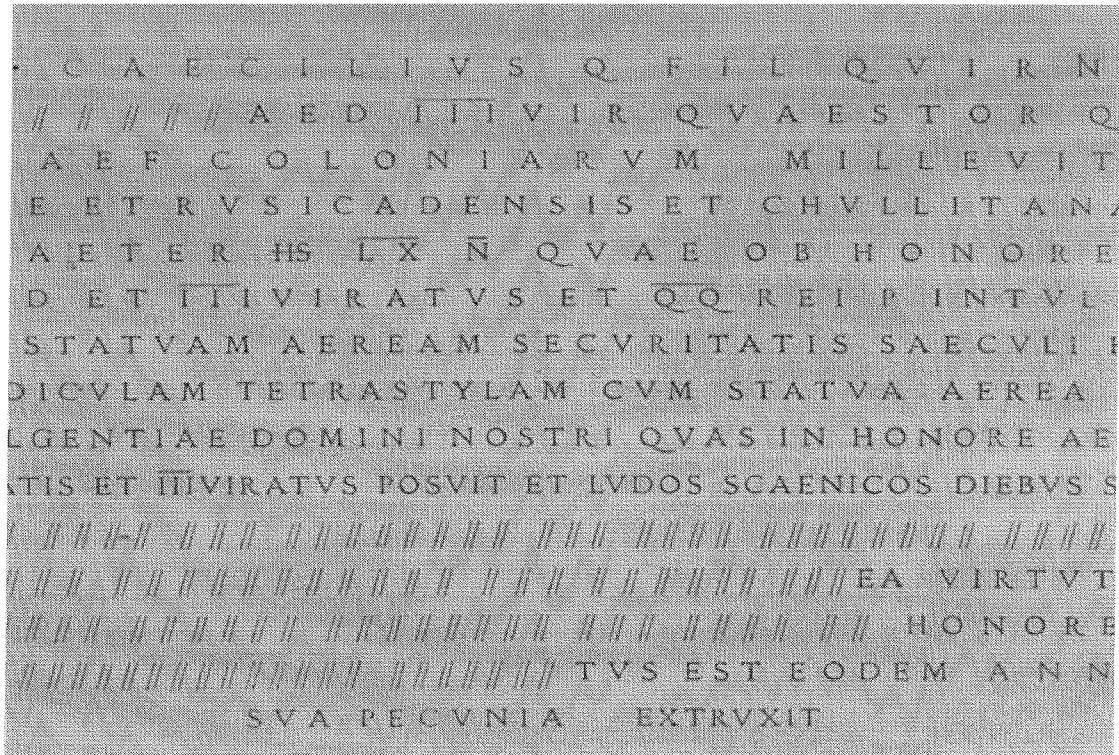 · CAECILIVS Q FIL QVIR N
AED IIIVIR QVAESTOR Q
AEF COLONIARVM MILLEVIT
E ET RVSICADENSIS ET CHVLLITANA
AETER HS LX N QVAE OB HONORE
D ET IIIVIRATVS ET QQ REI P INTVL
STATVAM AEREAM SECVRITATIS SAECVLI E
DICVLAM TETRASTYLAM CVM STATVA AEREA
LGENTIAE DOMINI NOSTRI QVAS IN HONORE AE
ATIS ET IIIVIRATVS POSVIT ET LVDOS SCAENICOS DIEBVS S
EA VIRTVT
HONORE
TVS EST EODEM ANN
SVA PECVNIA EXTRVXIT